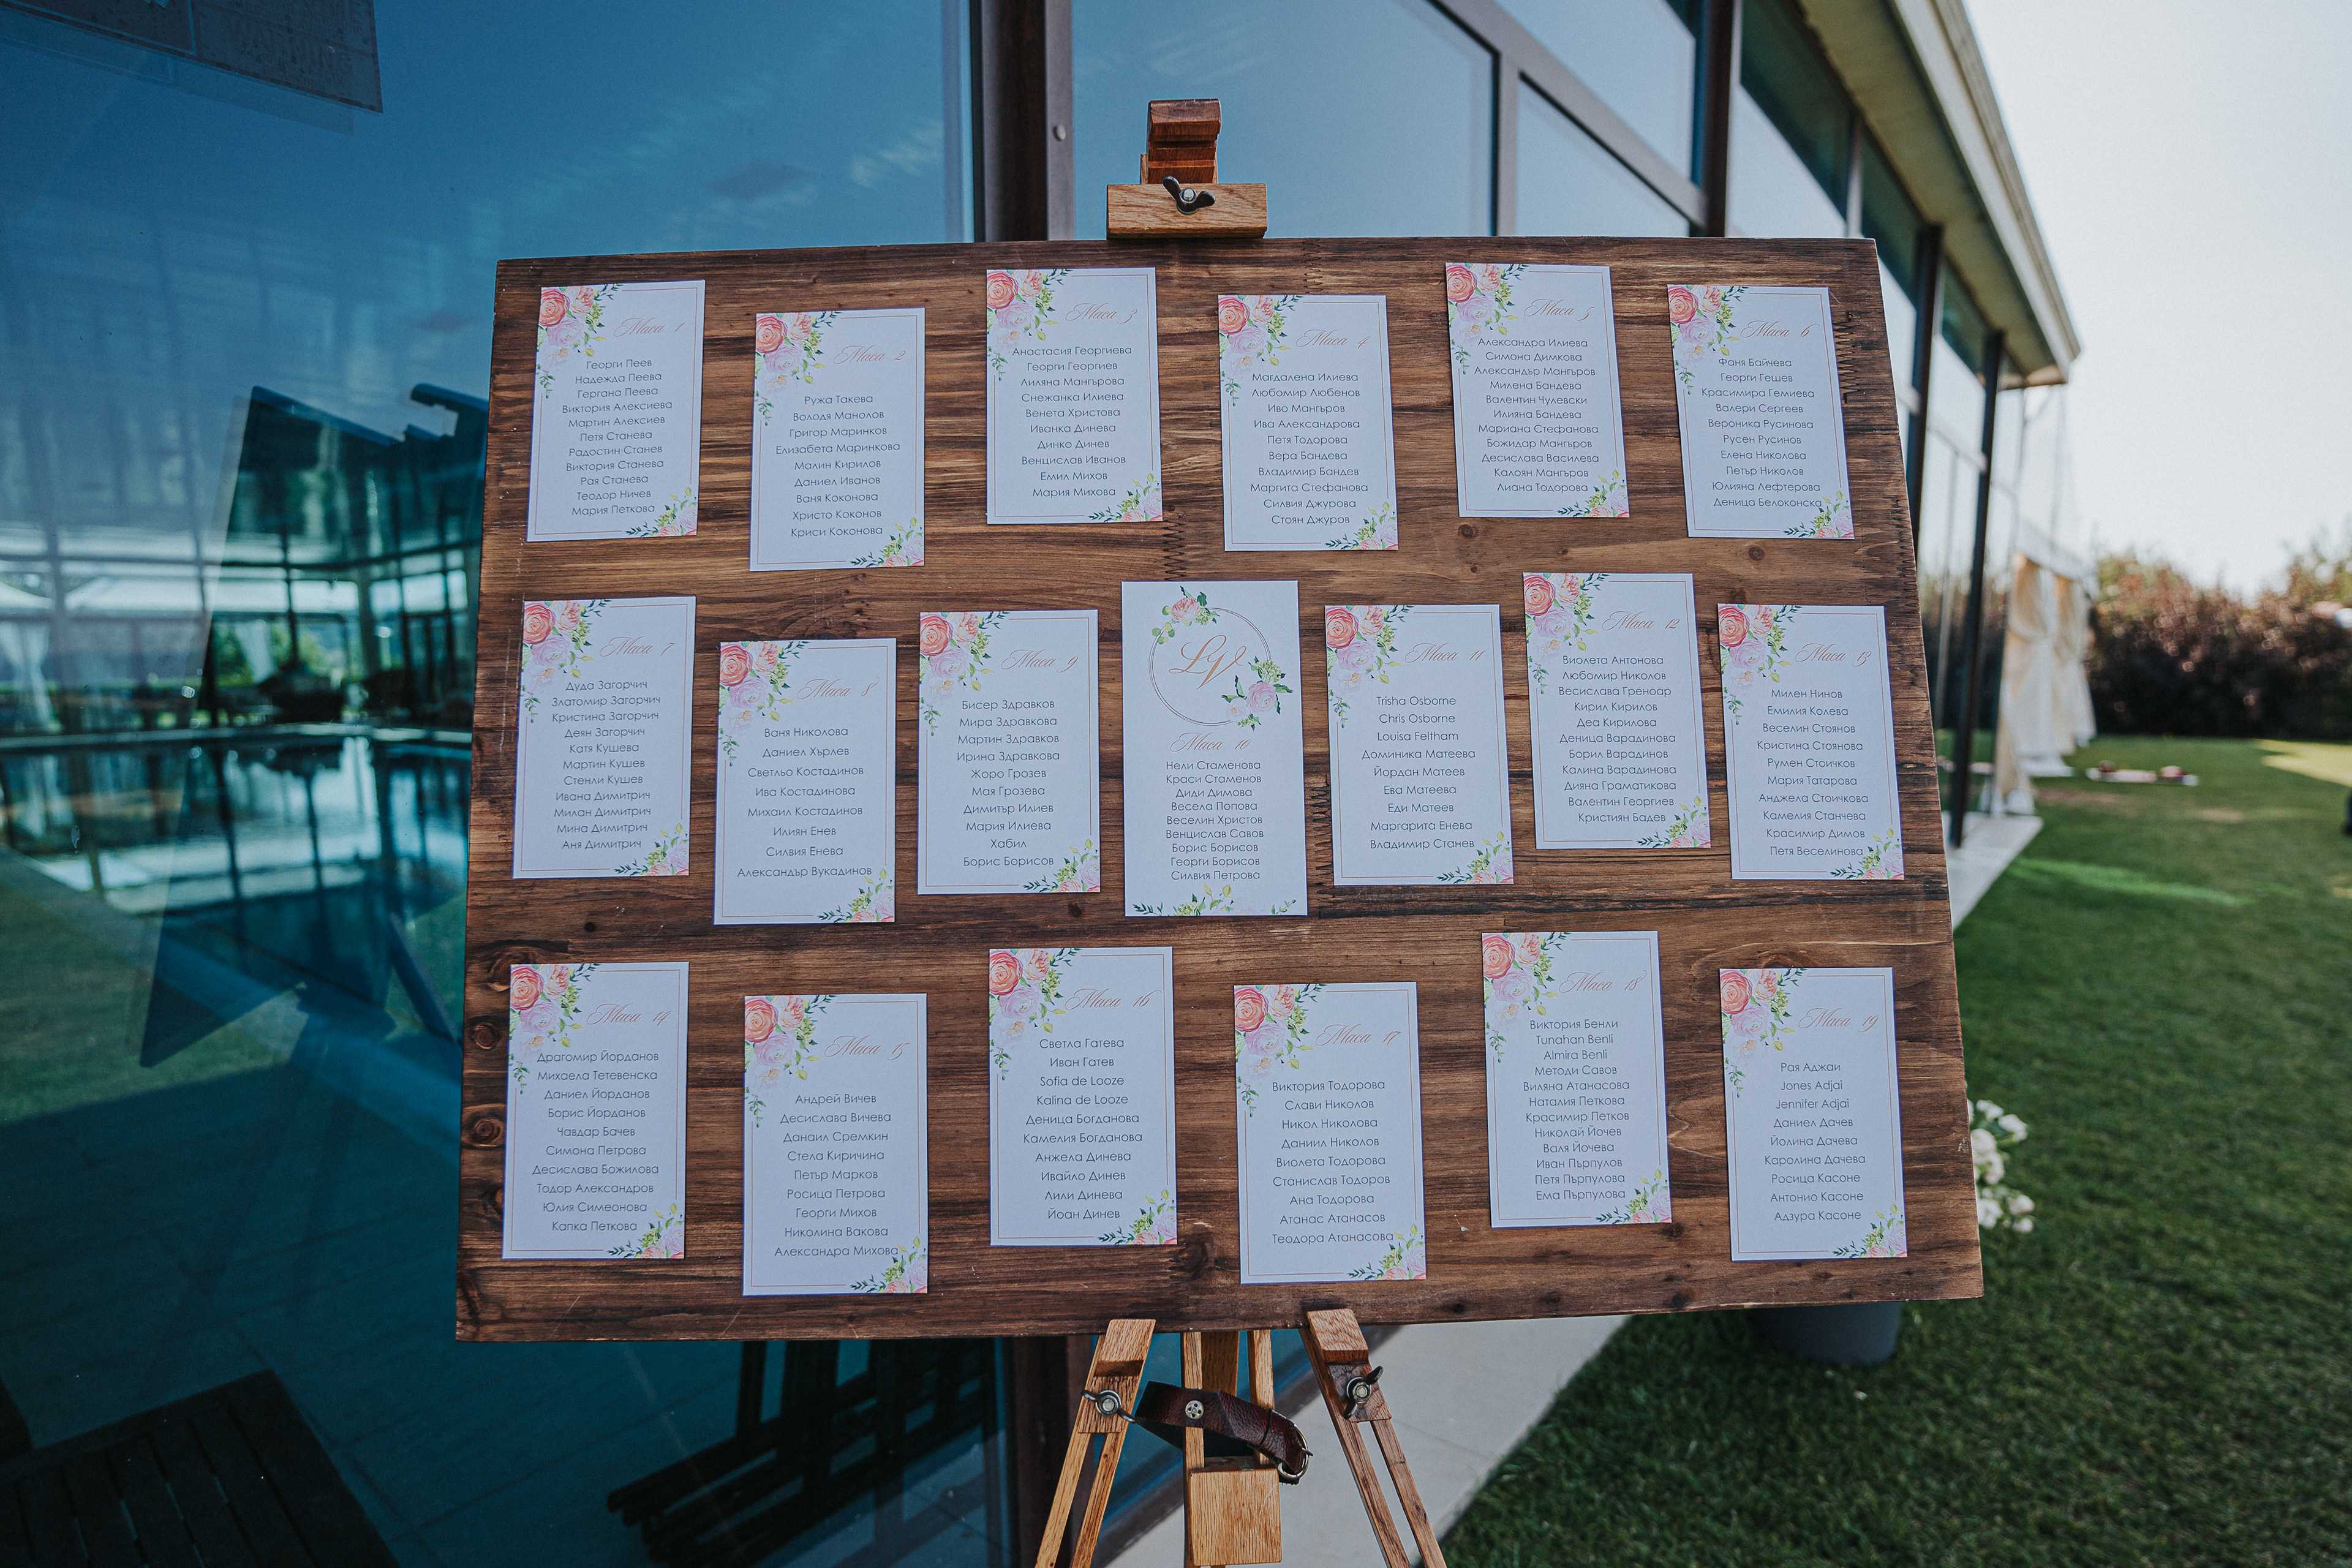 WARNING
Маса 1
Георги Пеев
Надежда Пеева
Гергана Пеева
Виктория Алексиева
Мартин Алексиев
Петя Станева
Радостин Станев
Виктория Станева
Рая Станева
Теодор Ничев
Мария Петкова
Маса 2
Ружа Такева
Володя Манолов
Григор Маринков
Елизабета Маринкова
Малин Кирилов
Даниел Иванов
Ваня Коконова
Христо Коконов
Криси Коконова
Маса 3
Анастасия Георгиева
Георги Георгиев
Лиляна Мангърова
Снежанка Илиева
Венета Христова
Иванка Динева
Динко Динев
Венцислав Иванов
Емил Михов
Мария Михова
Маса 4
Магдалена Илиева
Любомир Любенов
Иво Мангъров
Ива Александрова
Петя Тодорова
Вера Бандева
Владимир Бандев
Маргита Стефанова
Силвия Джурова
Стоян Джуров
Маса 5
Александра Илиева
Симона Димкова
Александър Мангъров
Милена Бандева
Валентин Чулевски
Илияна Бандева
Мариана Стефанова
Божидар Мангъров
Десислава Василева
Калоян Мангъров
Лиана Тодорова
Маса 6
Фаня Байчева
Георги Гешев
Красимира Гемиева
Валери Сергеев
Вероника Русинова
Русен Русинов
Елена Николова
Петър Николов
Юлияна Лефтерова
Деница Белоконска
Маса 7
Дуда Загорчич
Златомир Загорчич
Кристина Загорчич
Деян Загорчич
Катя Кушева
Мартин Кушев
Стенли Кушев
Ивана Димитрич
Милан Димитрич
Мина Димитрич
Аня Димитрич
Маса 8
Ваня Николова
Даниел Хърлев
Светльо Костадинов
Ива Костадинова
Михаил Костадинов
Илиян Енев
Силвия Енева
Александър Вукадинов
Маса 9
Бисер Здравков
Мира Здравкова
Мартин Здравков
Ирина Здравкова
Жоро Грозев
Мая Грозева
Димитър Илиев
Мария Илиева
Хабил
Борис Борисов
LV
Маса 10
Нели Стаменова
Краси Стаменов
Диди Димова
Весела Попова
Веселин Христов
Венцислав Савов
Борис Борисов
Георги Борисов
Силвия Петрова
Маса 11
Trisha Osborne
Chris Osborne
Louisa Feltham
Доминика Матеева
Йордан Матеев
Ева Матеева
Еди Матеев
Маргарита Енева
Владимир Станев
Маса 12
Виолета Антонова
Любомир Николов
Весислава Греноар
Кирил Кирилов
Деа Кирилова
Деница Варадинова
Борил Варадинов
Калина Варадинова
Дияна Граматикова
Валентин Георгиев
Кристиян Бадев
Маса 13
Милен Нинов
Емилия Колева
Веселин Стоянов
Кристина Стоянова
Румен Стоичков
Мария Татарова
Анджела Стоичкова
Камелия Станчева
Красимир Димов
Петя Веселинова
Маса 14
Драгомир Йорданов
Михаела Тетевенска
Даниел Йорданов
Борис Йорданов
Чавдар Бачев
Симона Петрова
Десислава Божилова
Тодор Александров
Юлия Симеонова
Капка Петкова
Маса 15
Андрей Вичев
Десислава Вичева
Данаил Сремкин
Стела Киричина
Петър Марков
Росица Петрова
Георги Михов
Николина Вакова
Александра Михова
Маса 16
Светла Гатева
Иван Гатев
Sofia de Looze
Kalina de Looze
Деница Богданова
Камелия Богданова
Анжела Динева
Ивайло Динев
Лили Динева
Йоан Динев
Маса 17
Виктория Тодорова
Слави Николов
Никол Николова
Даниил Николов
Виолета Тодорова
Станислав Тодоров
Ана Тодорова
Атанас Атанасов
Теодора Атанасова
Маса 18
Виктория Бенли
Tunahan Benli
Almira Benli
Методи Савов
Виляна Атанасова
Наталия Петкова
Красимир Петков
Николай Йочев
Валя Йочева
Иван Пърпулов
Петя Пърпулова
Ема Пърпулова
Маса 19
Рая Аджаи
Jones Adjai
Jennifer Adjai
Даниел Дачев
Йолина Дачева
Каролина Дачева
Росица Касоне
Антонио Касоне
Адзура Касоне